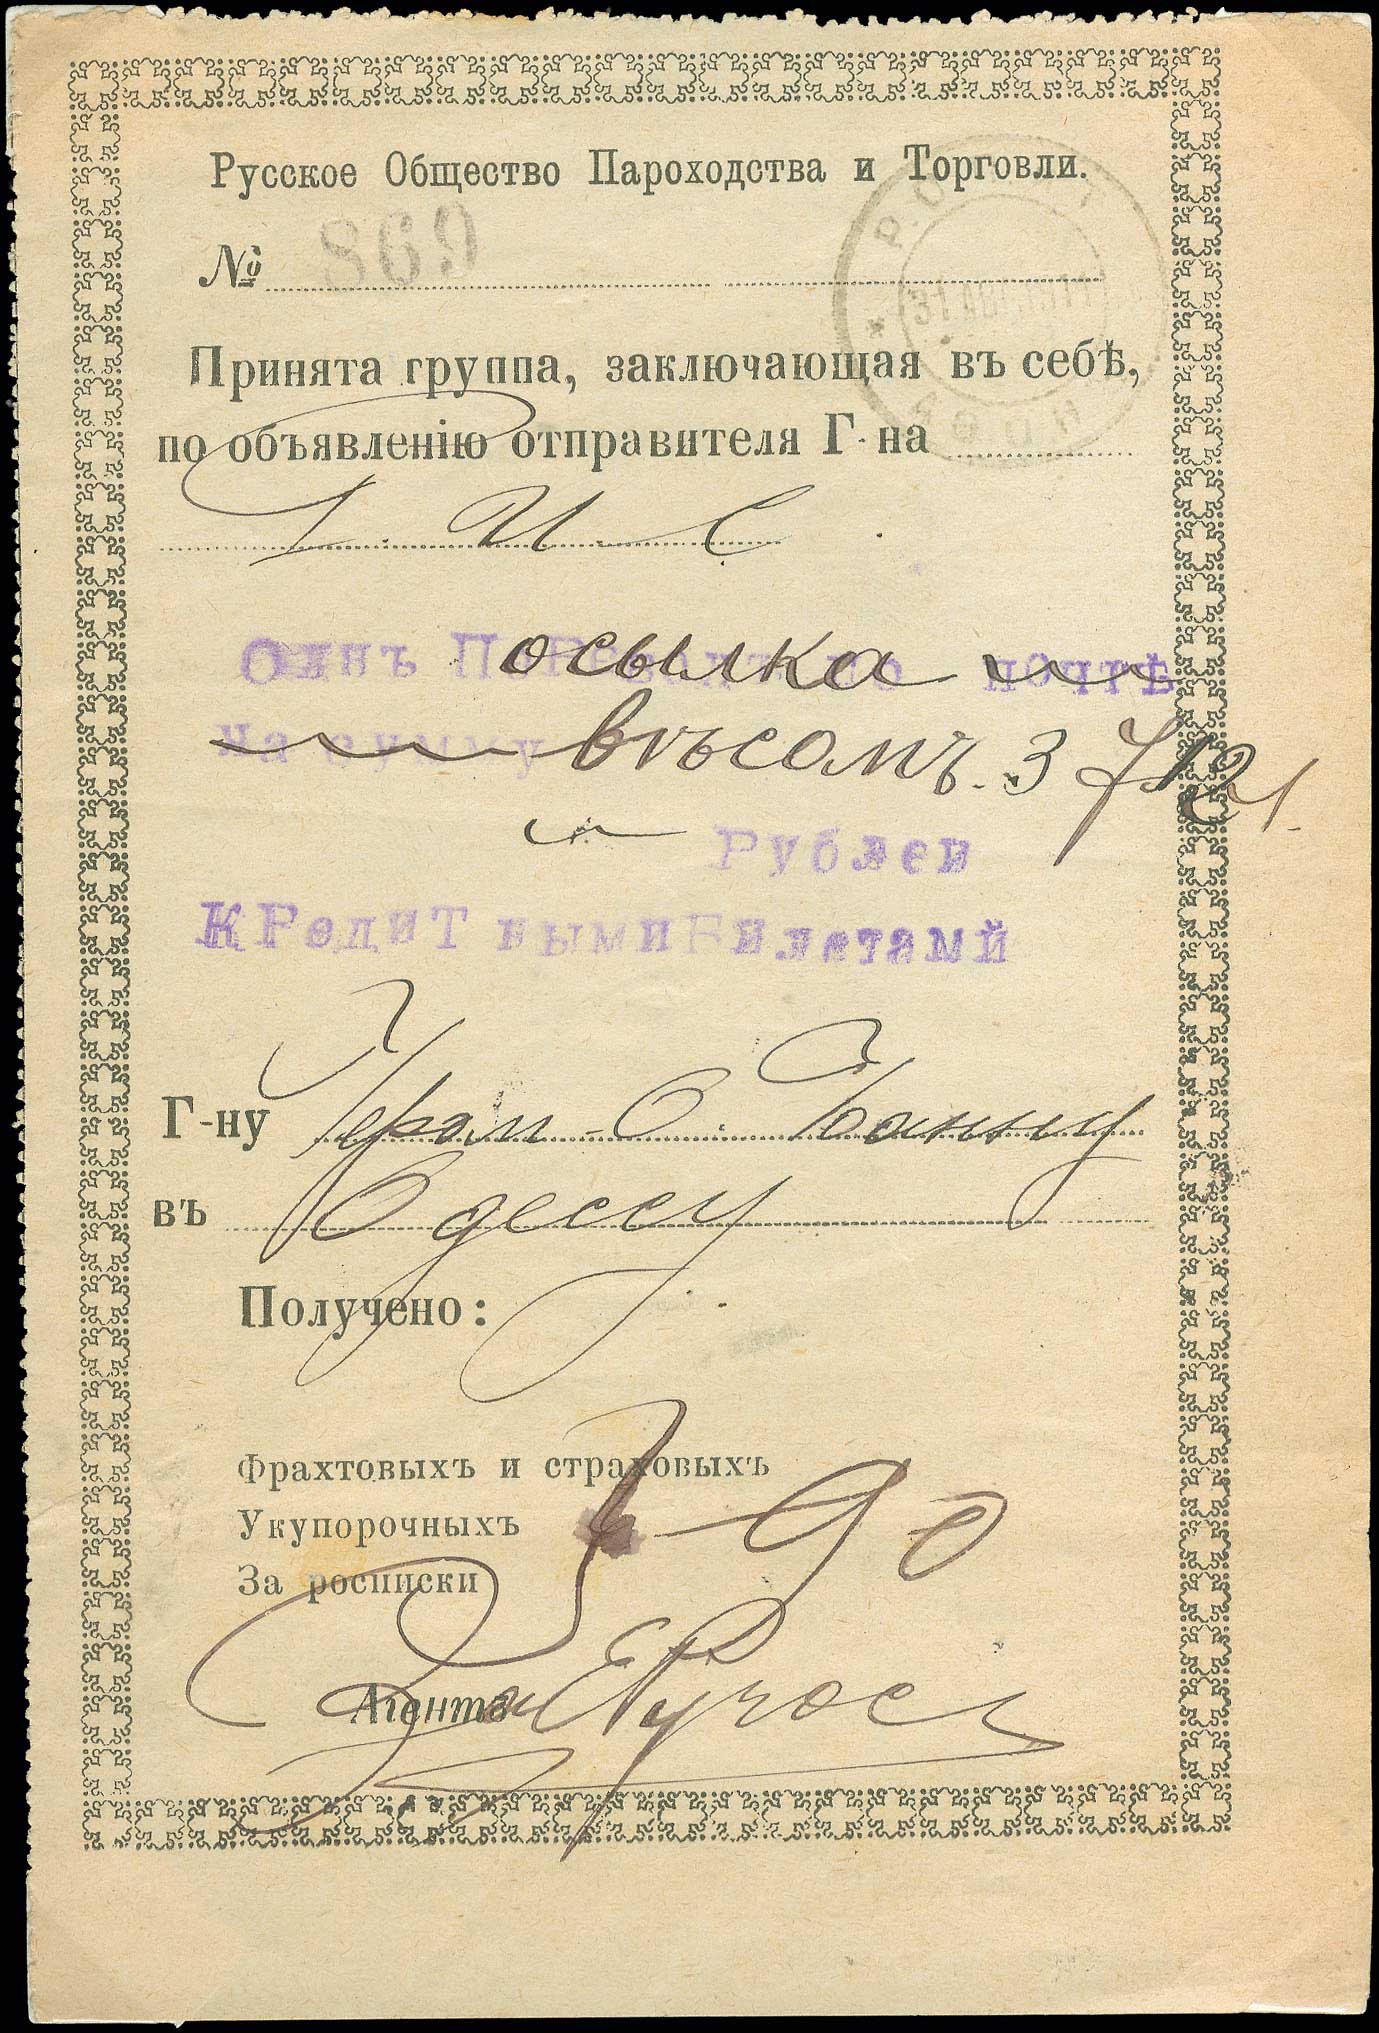 Русское Общество Пароходства и Торговли.
№ 869
Р.О. П. и Т.
31 АВГ
Принята группа, заключающая въ себѣ,
по объявленію отправителя Г-на
Г. И. С.
Одинъ П по почтѣ
осылка
на сумму
вѣсомъ. 3
Рублей
Кредит ными Билетами
Г-ну Черн. О. Банку
въ Одессу
Получено:
Фрахтовыхъ и страховыхъ
Укупорочныхъ 90
За росписки
Агентъ